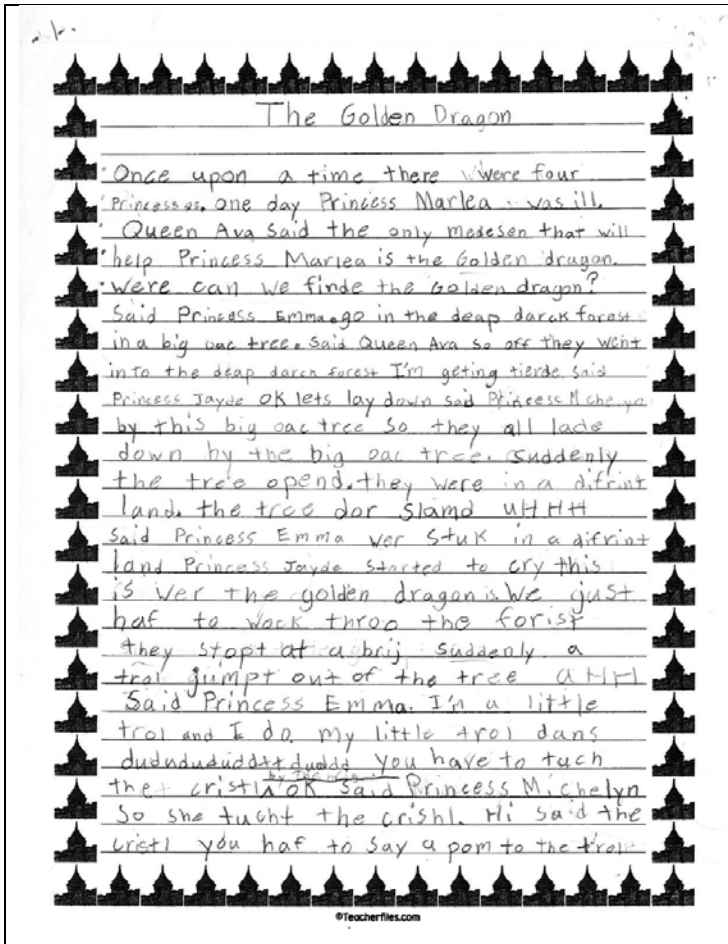 The Golden Dragon
Once upon a time there were four
Princesses. one day Princess Marlea was ill.
Queen Ava said the only medesen that will
help Princess Marlea is the Golden dragon.
Were can we finde the Golden dragon?
Said Princess Emma. go in the deap darck forest
in a big oac tree. Said Queen Ava so off they went
in to the deap darck forest I'm geting tierde said
Princess Jayde OK lets lay down said Princess
by this big oac tree So they all lade
down by the big oac tree. Suddenly
the tree opend. they were in a difrint
land. the tree dor slamd UHHH
Said Princess Emma wer stuk in a difrint
land Princess Jayde started to cry this
is wer the golden dragon is. We just
haf to wock throo the forist
they stopt at a brij suddenly a
trol jumpt out of the tree AHH
Said Princess Emma. I'm a little
trol and I do my little trol dans
dudndududdtt duddd you have to tuch
the cristl OK said Princess Michelyn
So she tucht the crishl. Hi said the
cristl you haf to say a pom to the trol
©Teacherfiles.com